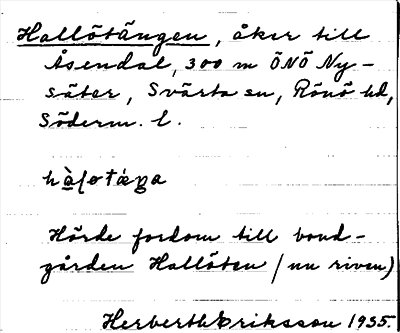 Hallötängen, åker till
Åsendal, 300 m ÖNÖ Ny-
säter, Svärta sn, Rönö hd,
Söderm. l.
Hörde fordom till bond-
gården Hallöten (nu riven)
Herbert Eriksson 1935.